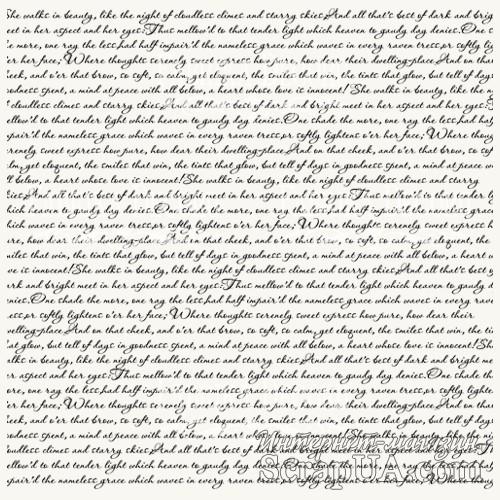 She walks in beauty, like the night of cloudless climes and starry skies,And all that's best of dark and brig
eet in her aspect and her eyes: Thus mellow'd to that tender light which heaven to gaudy day denies.One s
e more, one ray the less,had half impair'd the nameless grace which waves in every raven tress,or softly lig
er her face; Where thoughts serenely sweet express how pure, how dear their dwelling-place.And on that
heek, and o'er that brow, so soft, so calm, yet eloquent, the smiles that win, the tints that glow, but tell of days
oodness spent, a mind at peace with all below, a heart whose love is innocent! She walks in beauty, like the n
f cloudless climes and starry skies,And all that's best of dark and bright meet in her aspect and her eyes:
ellow'd to that tender light which heaven to gaudy day denies.One shade the more, one ray the less,had half
mpair'd the nameless grace which waves in every raven tress,or softly lightens o'er her face; Where thoug
erenely sweet express how pure, how dear their dwelling-place.And on that cheek, and o'er that brow, so soft, so
alm,yet eloquent, the smiles that win, the tints that glow, but tell of days in goodness spent, a mind at peace w
ll below, a heart whose love is innocent!She walks in beauty, like the night of cloudless climes and starry
kies,And all that's best of dark and bright meet in her aspect and her eyes:Thus mellow'd to that tender l
hich heaven to gaudy day denies.One shade the more, one ray the less,had half impair'd the nameless grace
hich waves in every raven tress,or softly lightens o'er her face; Where thoughts serenely sweet express h
ure, how dear their dwelling-place.And on that cheek, and o'er that brow, so soft, so calm,yet eloquent, the
miles that win, the tints that glow, but tell of days in goodness spent, a mind at peace with all below, a heart
ve is innocent!She walks in beauty, like the night of cloudless climes and starry skies,And all that's best o
ark and bright meet in her aspect and her eyes:Thus mellow'd to that tender light which heaven to gaudy d
enies.One shade the more, one ray the less,had half impair'd the nameless grace which waves in every raven
ess,or softly lightens o'er her face; Where thoughts serenely sweet express how pure, how dear their
welling-place.And on that cheek, and o'er that brow, so soft, so calm,yet eloquent, the smiles that win, the ti
at glow, but tell of days in goodness spent, a mind at peace with all below, a heart whose love is innocent!Sh
alks in beauty, like the night of cloudless climes and starry skies,And all that's best of dark and bright me
er aspect and her eyes:Thus mellow'd to that tender light which heaven to gaudy day denies.One shade th
ore, one ray the less,had half impair'd the nameless grace which waves in every raven tress,or softly lighten
er her face; Where thoughts serenely sweet express how pure, how dear their dwelling-place.And on that
heek, and o'er that brow, so soft, so calm, yet eloquent, the smiles that win, the tints that glow, but tell of days
oodness spent, a mind at peace with all below, a heart whose love is innocent! She walks in beauty, like the ni
f cloudless climes and starry skies,And all that's best of dark and bright meet in her aspect and her eyes:T
ellow'd to that tender light which heaven to gaudy day denies.One shade the more, one ray the less,had half
mpair'd the nameless grace which waves in every raven tress,or softly lightens o'er her face; Where though
Интернет-магазин
ScrapUA.com